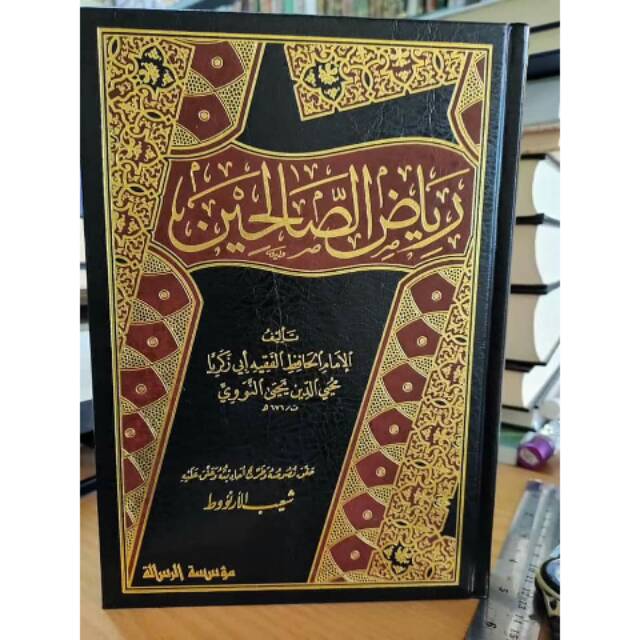 رياض الصالحين
تأليف
الإمام الحافظ الفقيه أبي زكريا
محيي الدين يحيى النووي
ت/٦٧٦ هـ
حقق نصوصه وخرج أحاديثه وعلق عليه
شعيب الأرنؤوط
مؤسسة الرسالة